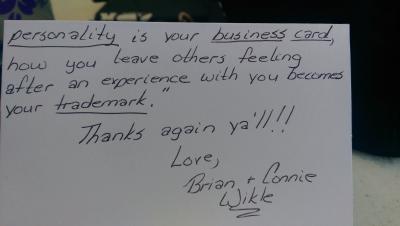 personality is your business card,
how you leave others feeling
after an experience with you becomes
your trademark."
Thanks again ya'll!!
Love,
Brian + Connie
Wikle